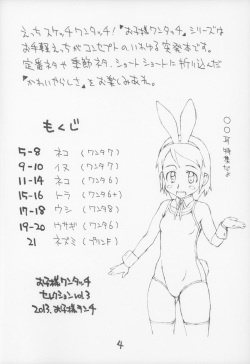 えっちスケッチワンタッチ！『お子様ワンタッチ』シリーズは
お手軽えっちがコンセプトのいわゆる突発本です。
定番ネタや季節ネタ、ショートショートに折り込んだ
『かわいやらしさ』をお楽しみあれ。
もくじ
5-8 ネコ (ワンタ7)
9-10 イヌ (ワンタ7)
11-14 ネコ (ワンタ6)
15-16 トラ (ワンタ6+)
17-18 ウシ (ワンタ8)
19-20 ウサギ (ワンタ6)
21 ネズミ (プリンF)
お子様ワンタッチ
セレクション vol.3
2013. お子様ランチ
4